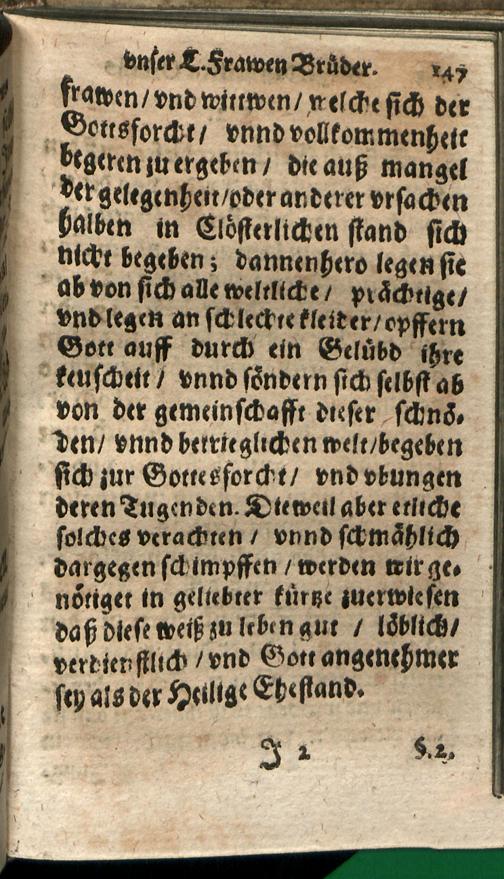 vnser L. Frawen Brüder. 147
frawen / vnd wittwen / welche sich der
Gottsforcht / vnnd vollkommenheit
begeren zu ergeben / die auß mangel
der gelegenheit / oder anderer vrsachen
halben in Clösterlichen stand sich
nicht begeben; dannenhero legen sie
ab von sich alle weltliche / prächtige /
vnd legen an schlechte kleider / opffern
Gott auff durch ein Gelübd ihre
keuscheit / vnnd söndern sich selbst ab
von der gemeinschafft dieser schnö-
den / vnnd betrieglichen welt / begeben
sich zur Gottesforcht / vnd vbungen
deren Tugenden. Dieweil aber etliche
solches verachten / vnnd schmählich
dargegen schimpffen / werden wir ge-
nötiget in geliebter kürtze zuerwiesen
daß diese weiß zu leben gut / löblich /
verdienstlich / vnd Gott angenehmer
sey als der Heilige Ehestand.
J 2 §. 2.